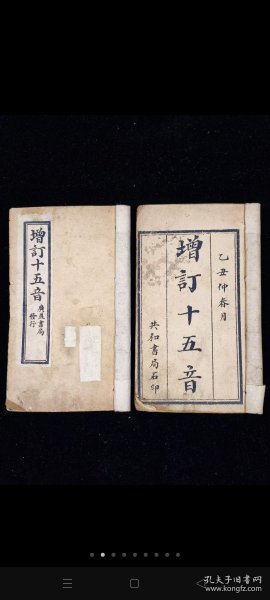 增訂十五音
廣益書局
發行
乙丑仲春月
增訂十五音
共和書局石印
孔夫子旧书网
www.kongfz.com